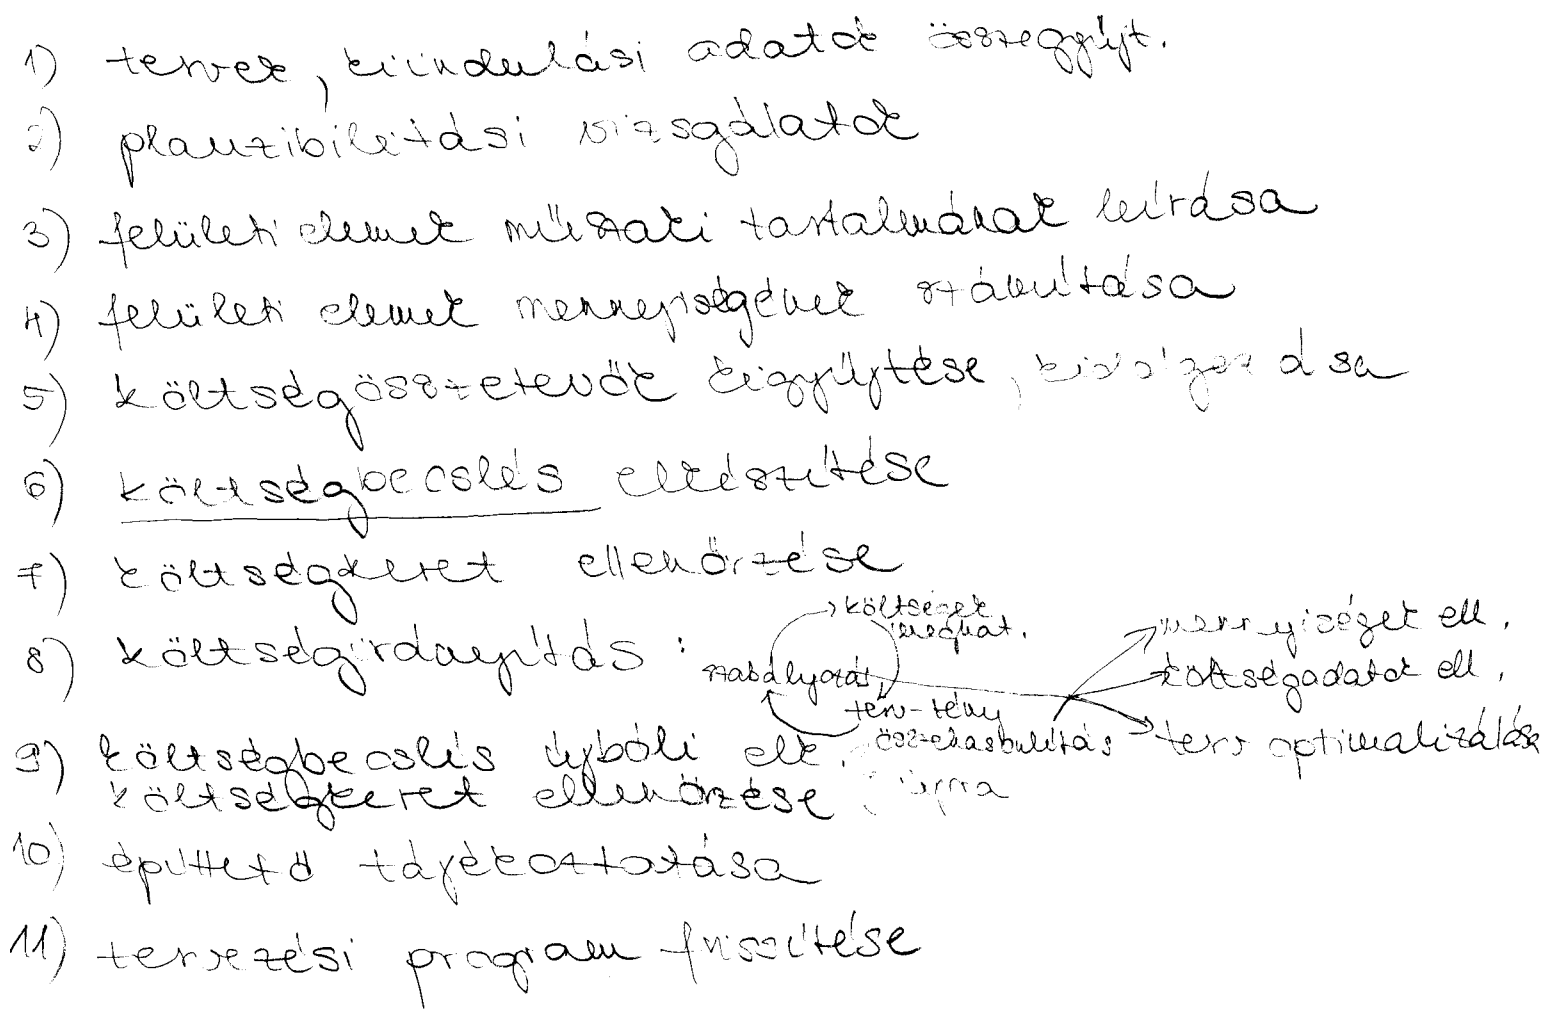 1) tervek, kiindulási adatok összegyűjt.
2) plauzibilitási vizsgálatok
3) felületi elemek műszaki tartalmának leírása
4) felületi elemek mennyiségének számítása
5) költségösszetevők kigyűjtése,
6) költségbecslés elkészítése
7) költségkeret ellenőrzése
8) költségirányítás :
költségek
meghat.
szabályozás
terv-tény
összehasonlítás
mennyiséget ell.
költségadatok ell.
terv optimalizálása
9) költségbecslés újbóli elk.
költségkeret ellenőrzése újra
10) építtető tájékoztatása
11) tervezési program frissítése